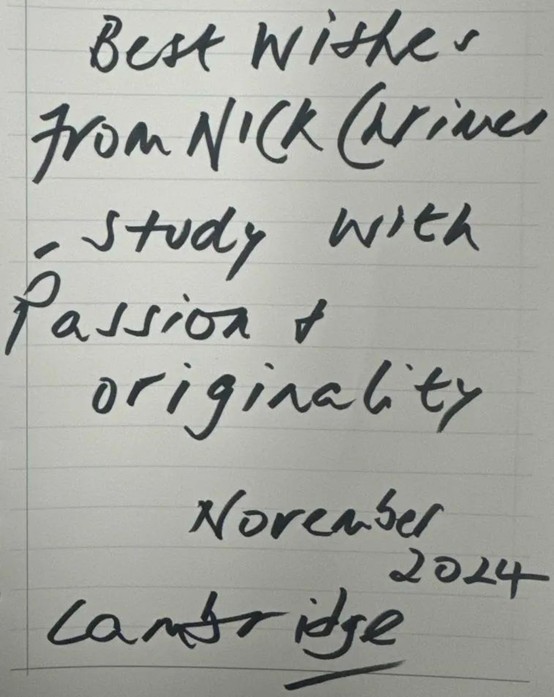 Best Wishes
from NICK Chrimes
- study with
Passion +
originality
November
2024
Cambridge